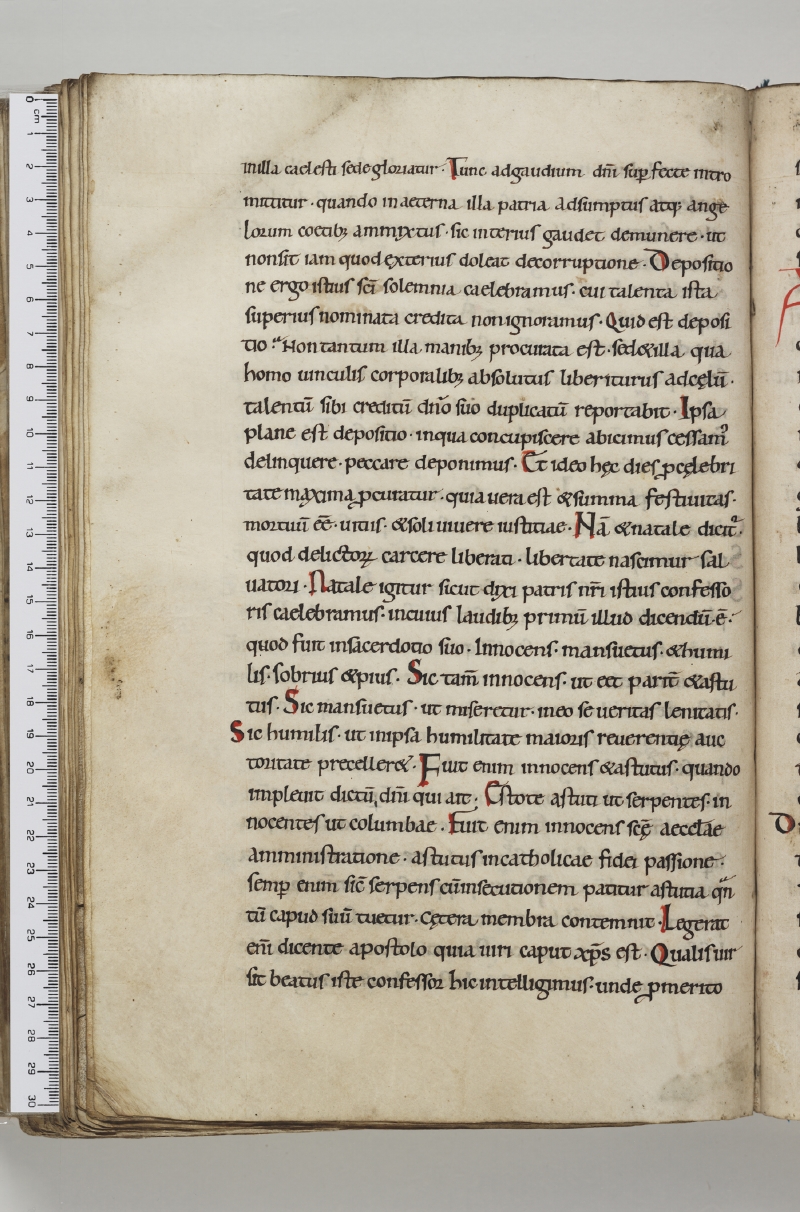 in illa caelesti sede gloriatur. Tunc adgaudium dñi sup̱ fecte intro
mittitur. quando in aeterna illa patria adsumptus atq; ange
lorum coetib; ammixtus. sic interius gaudet demunere. ut
nonsit iam quod exterius doleat decorruptione. Depositio
ne ergo istius sc̄i solemnia caelebramus. cui talenta ista
superius nominata credita nonignoramus. Quid est deposi
tio? Non tantum illa manib; procurata est. sed & illa qua
homo uinculis corporalib; absolutus liber iturus adcęlū.
talentū sibi creditū dño suo duplicatū reportabit. Ipsa
plane est depositio. inqua concupiscere abicimus cessam᷒
delinquere. peccare deponimus. Et ideo hęc dies p̱ cęlebri
tate maxima p̱curatur. quia uera est & summa festiuitas.
mortuū ēē. uitiis. & soli uiuere iustitiae. Nā & natale dicit᷒.
quod delictoꝝ carcere liberati. libertate nascimur sal
uatori. Natale igitur sicut dixi patris nr̄i istius confesso
ris caelebramus. incuius laudib; primū illud dicendū ē.
quod fuit insacerdotio suo. Innocens. mansuetus. & humi
lis. sobrius & pius. Sic tam̄ innocens. ut eēt parit̄ & astu
tus. Sic mansuetus. ut miseretur. ineo se ueritas lenitatis.
Sic humilis. ut inipsa humilitate maioris reuerentię auc
toritate preceller&. Fuit enim innocens & astutus. quando
impleuit dictū dñi qui ait; Estote astuti ut serpentes. in
nocentes ut columbae. Fuit enim innocens sc̄ę aecclae
amministratione. astutus incatholicae fidei passione.
semp̱ enim sic̄ serpens cū insecutionem patitur astutia qn̄
tū capud suū tuetur. cętera membra contemnit. Legerat
eni̅ dicente apostolo quia uiri caput xp̄s est. Qualis uir
sit beatus iste confessor hic intelligimus. unde p̱ merito